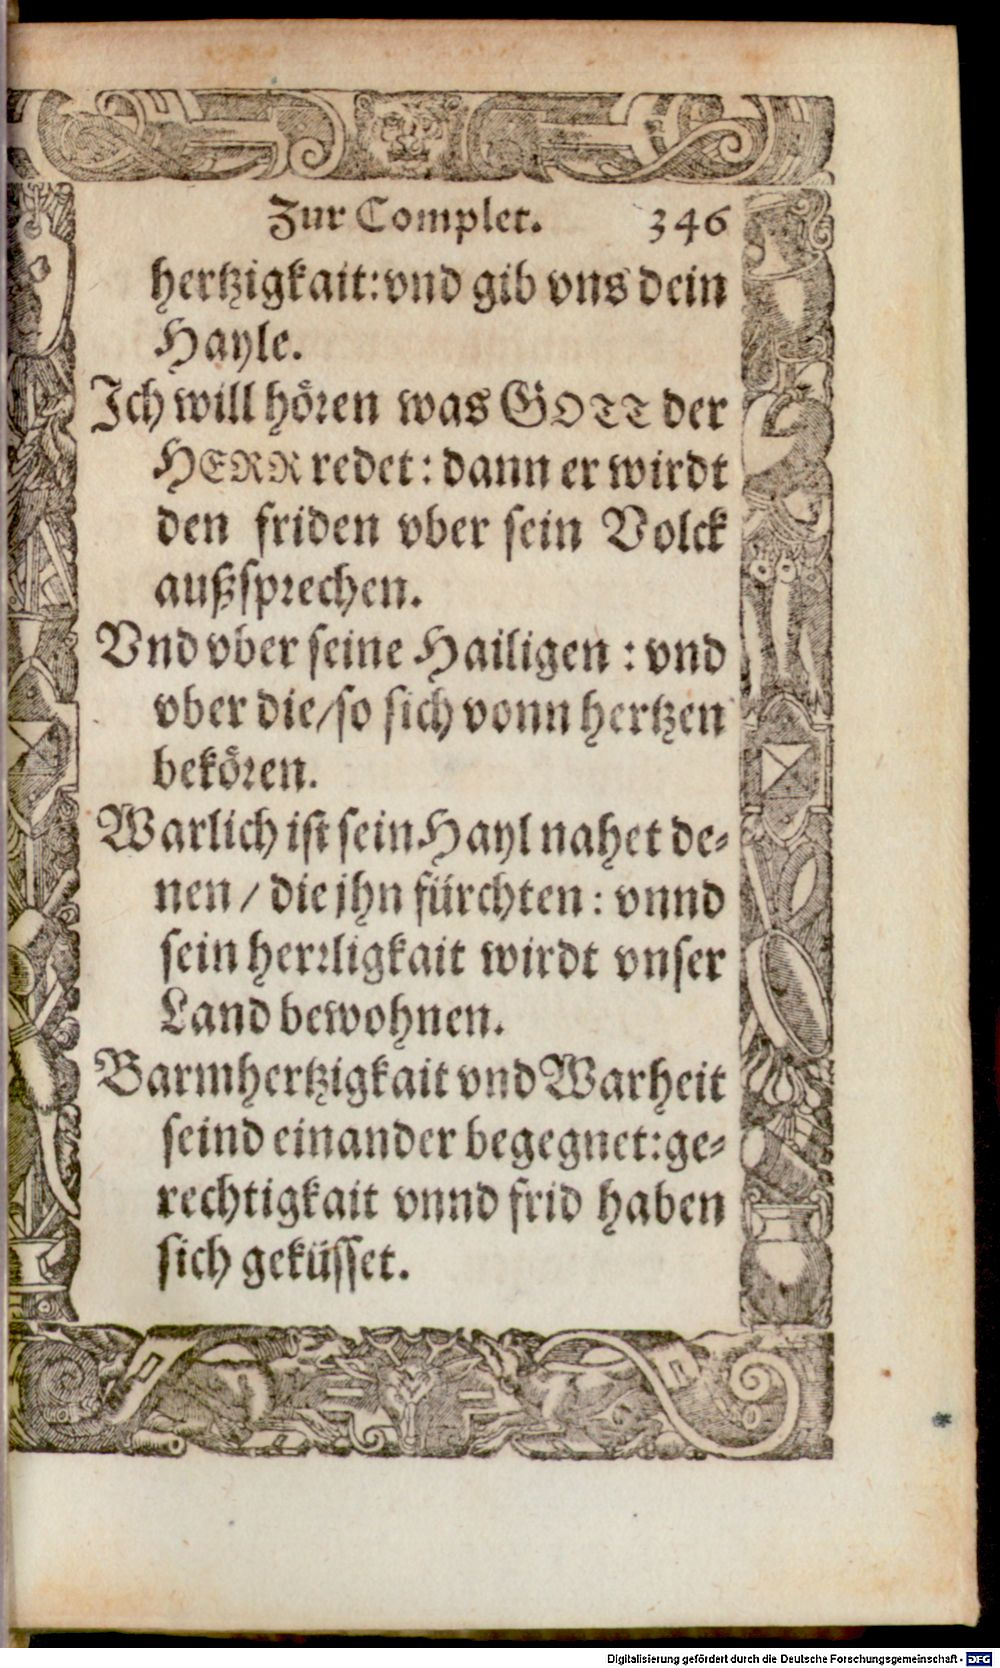 Zur Complet. 346
hertzigkait: vnd gib vns dein
Hayle.
Ich will hören was GOTT der
HERR redet: dann er wirdt
den friden vber sein Volck
außsprechen.
Vnd vber seine Hailigen : vnd
vber die/so sich vonn hertzen
bekören.
Warlich ist sein Hayl nahet de-
nen / die jhn fürchten: vnnd
sein herrligkait wirdt vnser
Land bewohnen.
Barmhertzigkait vnd Warheit
seind einander begegnet: ge-
rechtigkait vnnd frid haben
sich geküsset.
Digitalisierung gefördert durch die Deutsche Forschungsgemeinschaft - DFG